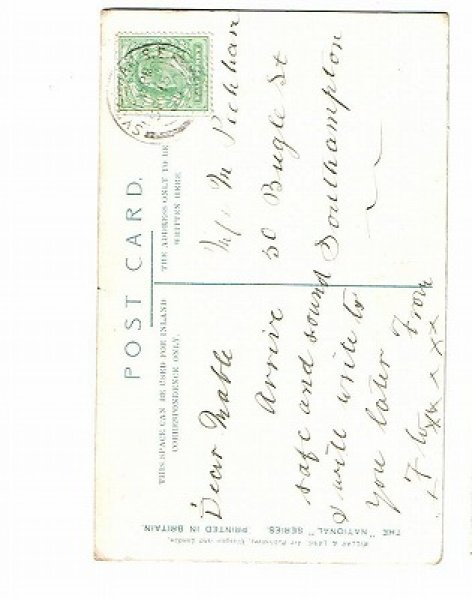 POST CARD.
THIS SPACE CAN BE USED FOR INLAND
CORRESPONDENCE ONLY.
THE ADDRESS ONLY TO BE
WRITTEN HERE
Dear Mable
Arrive
safe and sound
I will write to
you later From
xx x x x
M Pickham
50 Bugle St
Southampton
THE "NATIONAL" SERIES. PRINTED IN BRITAIN.
MILLAR & LANG, Art Publishers, Glasgow and London.